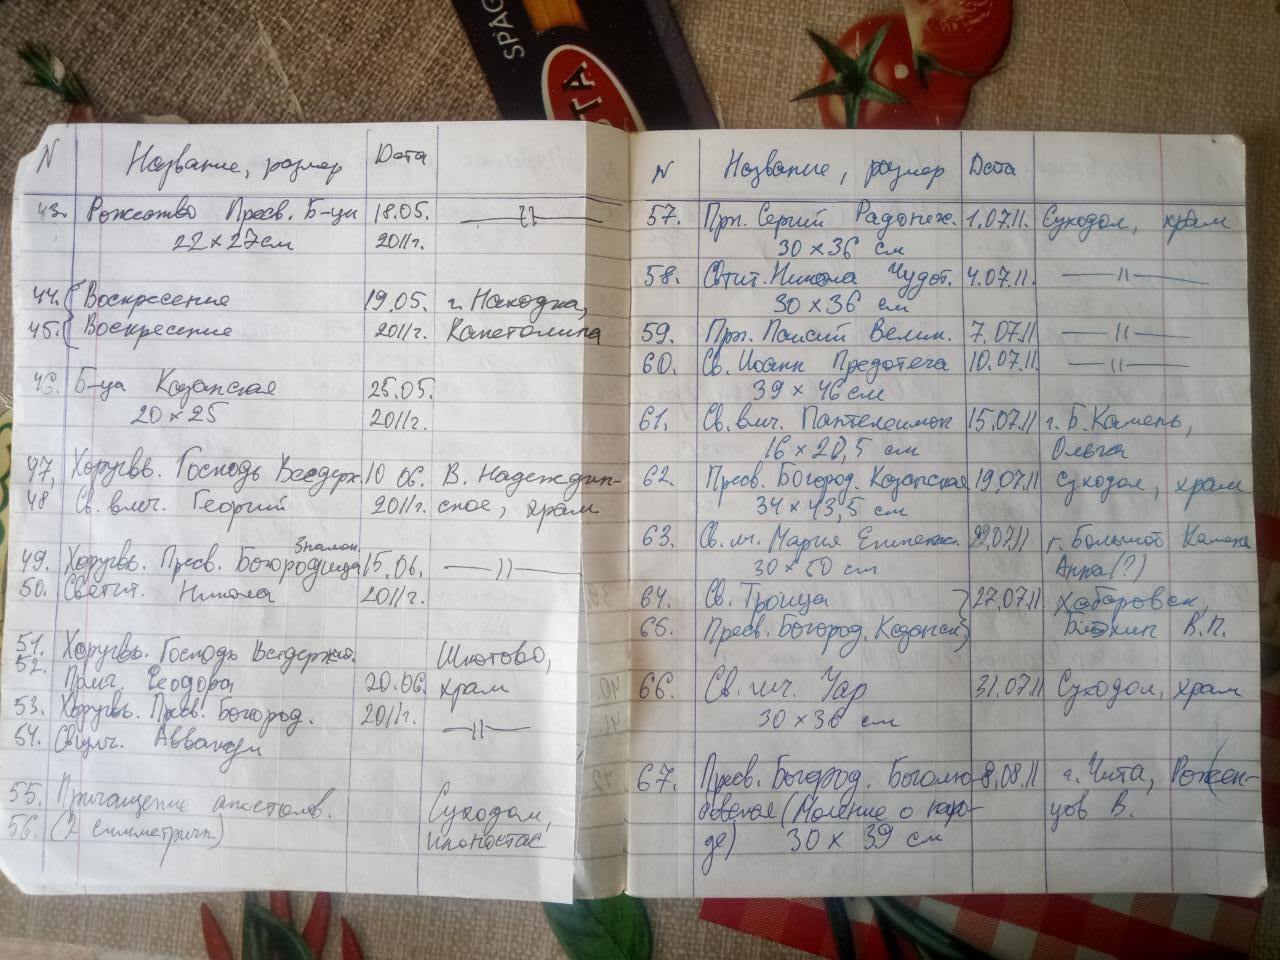 SPAG
ТА
N Название, размер Дата
43. Рожество Пресв. Б-цы 18.05. —〃—
22 x 27 см 2011г.
44. Воскресение 19.05. г. Находка,
45. Воскресение 2011г. Капетолина
46. Б-ца Казанская 25.05.
20 x 25 2011г.
47. Хоругвь. Господь Вседерж. 10 06. В. Надеждин-
48 Св. вмч. Георгий 2011г. ское, храм
Знамен.
49. Хоругвь. Пресв. Богородица 15.06. —〃—
50. Светит. Никола 2011г.
51. Хоругвь. Господь Вседержит. Шкотово,
52. Прмг. Феодора 20.06. храм
53. Хоругвь. Пресв. Богород. 2011г.
54. Авванкум —〃—
55. Причащение апостолов. Суходол,
56. (2 симметричн) иконостас
N Название, размер Дата
57. Прп. Сергий Радонеж. 1.07.11. Суходол, храм
30 x 36 см
58. Свтит. Никола Чудот. 4.07.11. —〃—
30 x 36 см
59. Прп. Паисий Велик. 7.07.11 —〃—
60. Св. Иоанн Предотеча 10.07.11. —〃—
39 x 46 см
61. Св. вмч. Пантелеимон 15.07.11 г. Б. Камень,
16 x 20,5 см Ольга
62. Пресв. Богород. Казанская 19.07.11 Суходол, храм
34 x 43,5 см
63. Св. Мария Египетск. 22.07.11 г. Большой Камень
30 x 50 см Анна (?)
64. Св. Троица 27.07.11 Хабаровск,
65. Пресв. Богород. Казанск. Блохин В.П.
66. Св. мч. Уар 31.07.11 Суходол, храм
30 x 36 см
67. Пресв. Богород. Боголю- 8.08.11 г. Чита, Рожен-
бовская (Моление о наро- цов В.
де) 30 x 39 см
40.
41.
42